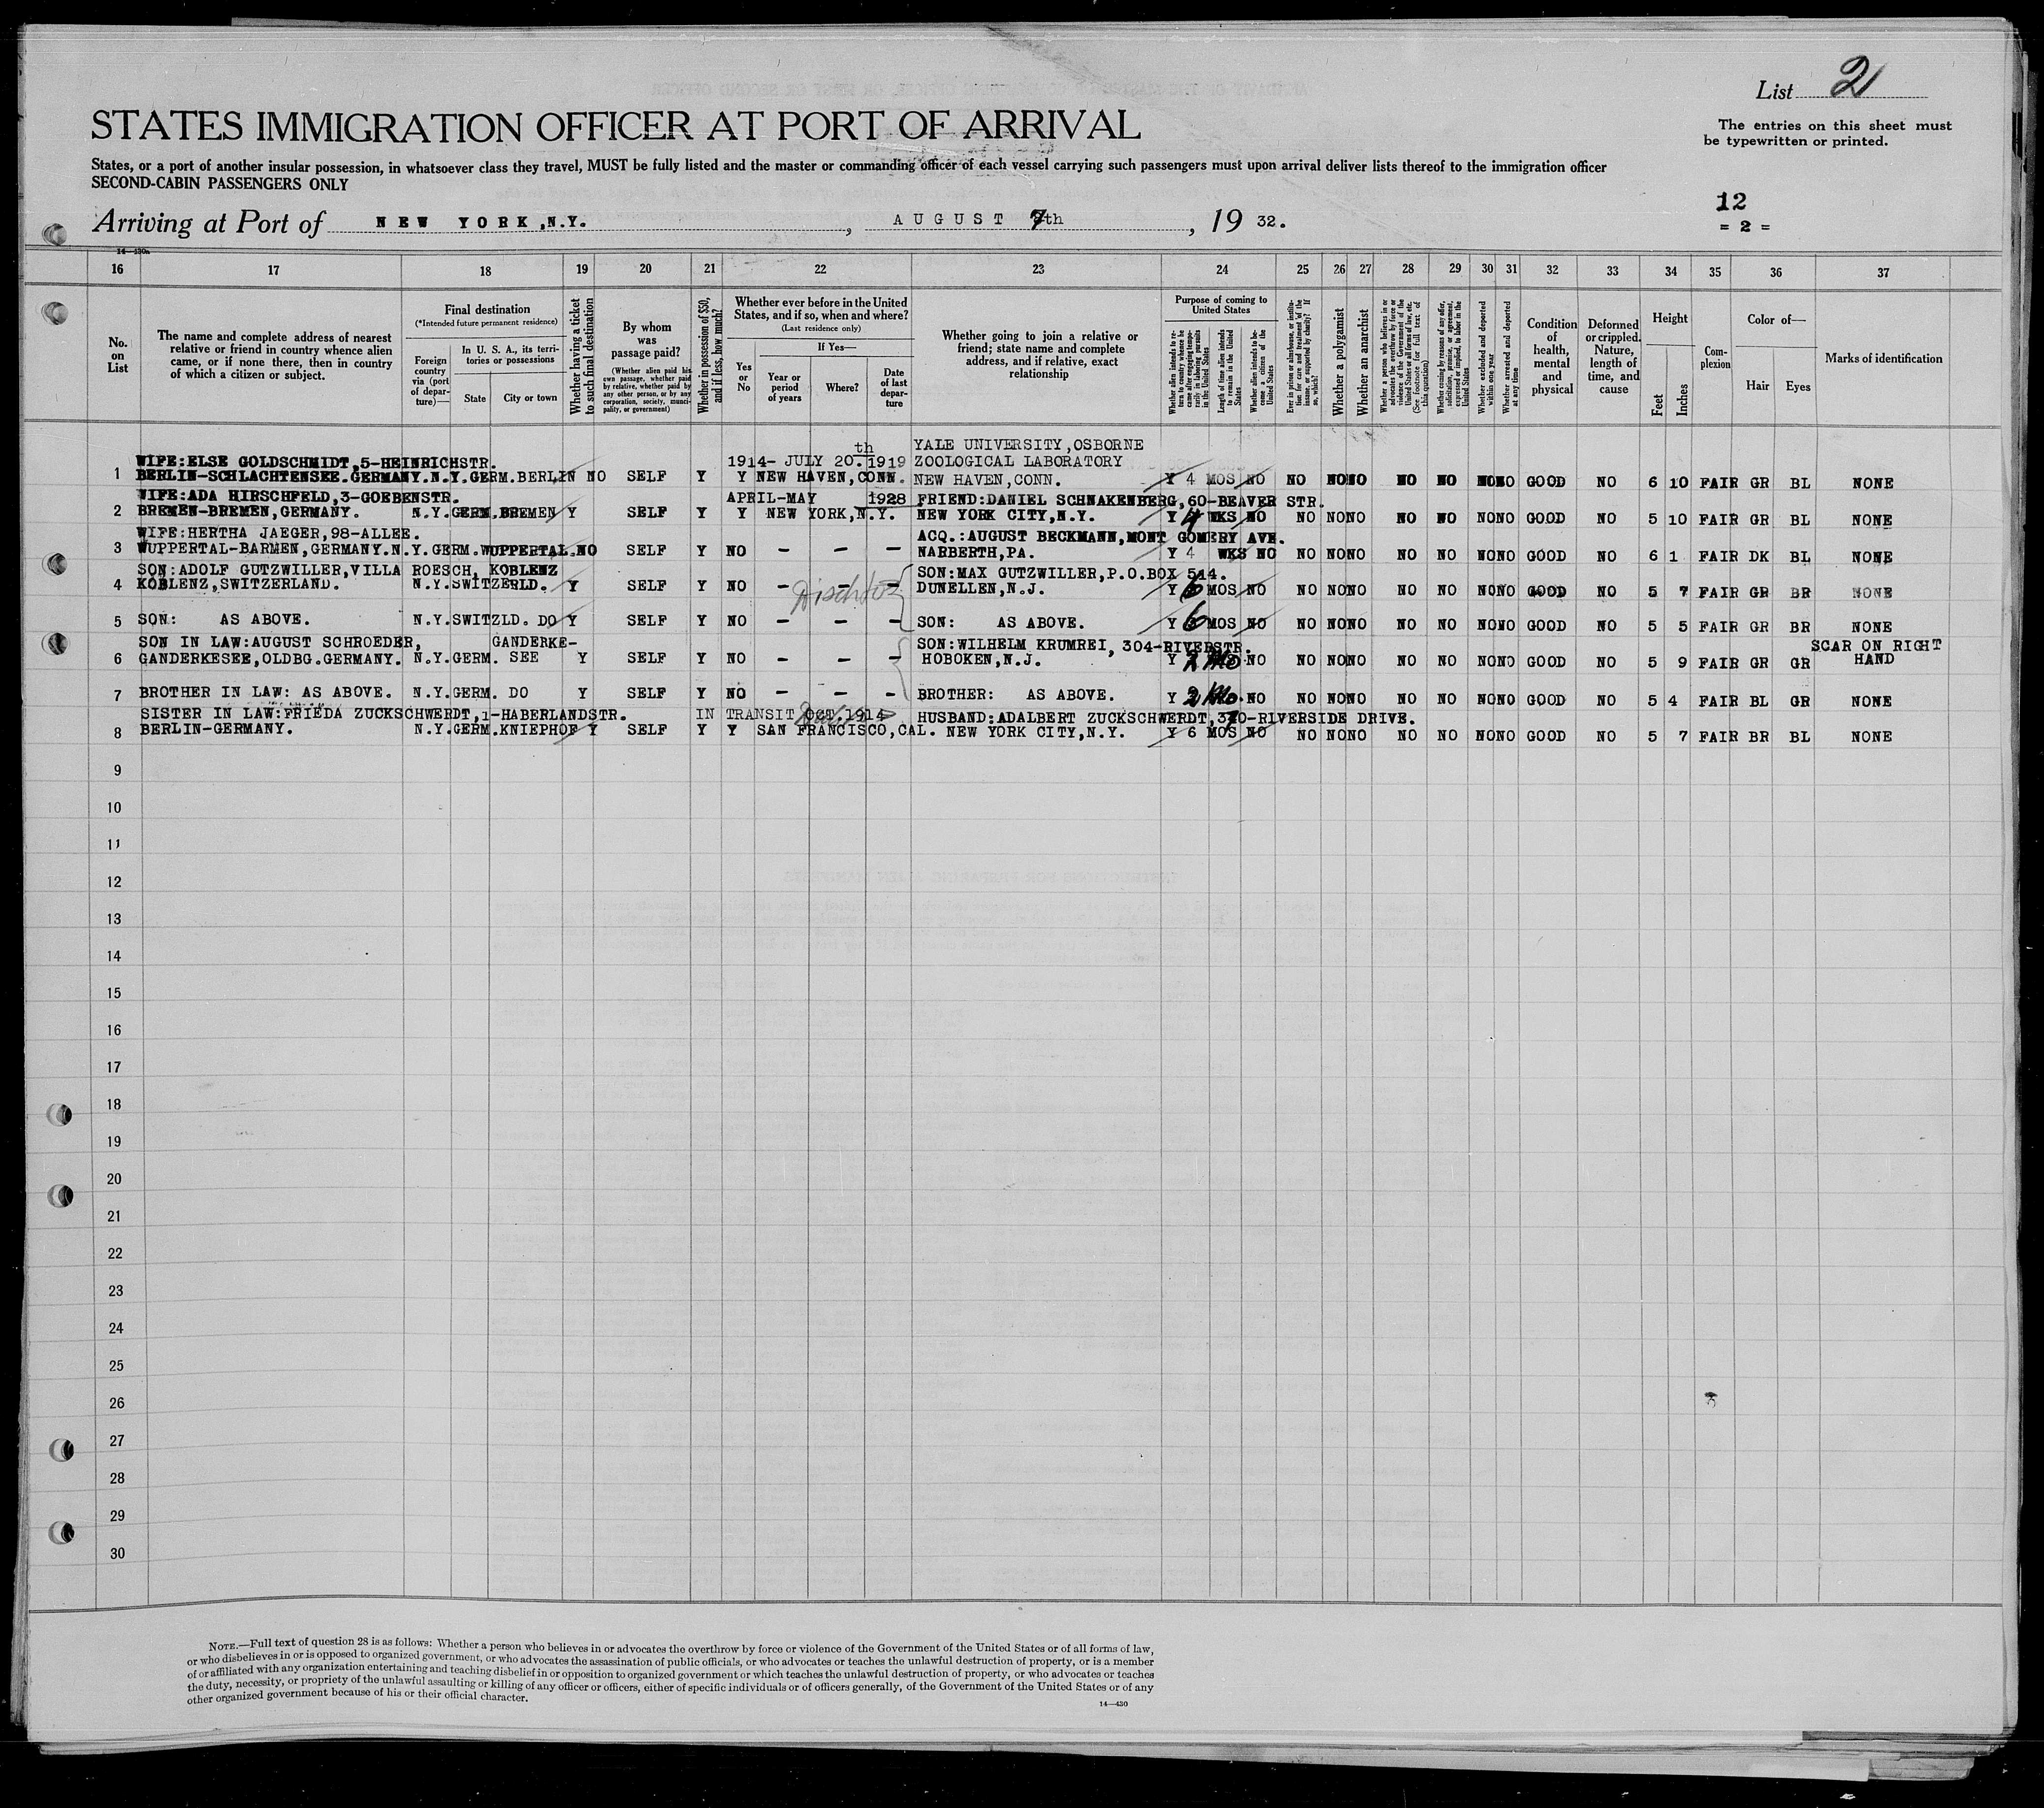 List 2
STATES IMMIGRATION OFFICER AT PORT OF ARRIVAL
The entries on this sheet must
be typewritten or printed.
States, or a port of another insular possession, in whatsoever class they travel, MUST be fully listed and the master or commanding officer of each vessel carrying such passengers must upon arrival deliver lists thereof to the immigration officer
SECOND-CABIN PASSENGERS ONLY
12
= 2 =
Arriving at Port of NEW YORK, N.Y., AUGUST 7th, 1932.
14—430a
16 17 18 19 20 21 22 23 24 25 26 27 28 29 30 31 32 33 34 35 36 37
No. on List
The name and complete address of nearest relative or friend in country whence alien came, or if none there, then in country of which a citizen or subject.
Final destination
(*Intended future permanent residence)
Foreign country via (port of departure)—
In U. S. A., its territories or possessions
State
City or town
Whether having a ticket to such final destination
By whom was passage paid?
(Whether alien paid his own passage, whether paid by relative, whether paid by any other person, or by any corporation, society, municipality, or government)
Whether in possession of $50, and if less, how much?
Whether ever before in the United States, and if so, when and where?
(Last residence only)
Yes or No
If Yes—
Year or period of years
Where?
Date of last departure
Whether going to join a relative or friend; state name and complete address, and if relative, exact relationship
Purpose of coming to United States
Whether alien intends to return to country whence he came after engaging temporarily in laboring pursuits in the United States
Length of time alien intends to remain in the United States
Whether alien intends to become a citizen of the United States
Ever in prison or almshouse, or institution for care and treatment of the insane, or supported by charity? If so, which?
Whether a polygamist
Whether an anarchist
Whether a person who believes in or advocates the overthrow by force or violence of the Government of the United States or all forms of law, etc. (See footnote for full text of this question)
Whether coming by reasons of any offer, solicitation, promise, or agreement, expressed or implied, to labor in the United States
Whether excluded and deported within one year
Whether arrested and deported at any time
Condition of health, mental and physical
Deformed or crippled. Nature, length of time, and cause
Height
Feet
Inches
Complexion
Color of—
Hair
Eyes
Marks of identification
WIFE:ELSE GOLDSCHMIDT,5-HEINRICHSTR. 1914- JULY 20.th 1919 YALE UNIVERSITY,OSBORNE ZOOLOGICAL LABORATORY
1 BERLIN-SCHLACHTENSEE.GERMANY. N.Y. GERM. BERLIN NO SELF Y Y NEW HAVEN,CONN. NEW HAVEN,CONN. Y 4 MOS NO NO NO NO NO NO NO NO GOOD NO 6 10 FAIR GR BL NONE
WIFE:ADA HIRSCHFELD,3-GOEBENSTR. APRIL-MAY 1928 FRIEND:DANIEL SCHNAKENBERG,60-BEAVER STR.
2 BREMEN-BREMEN,GERMANY. N.Y. GERM. BREMEN Y SELF Y Y NEW YORK,N.Y. NEW YORK CITY,N.Y. Y 4 WKS NO NO NO NO NO NO NO NO GOOD NO 5 10 FAIR GR BL NONE
WIFE:HERTHA JAEGER,98-ALLEE. ACQ.:AUGUST BECKMANN,MONT GOMERY AVE.
3 WUPPERTAL-BARMEN,GERMANY. N.Y. GERM. WUPPERTAL. NO SELF Y NO - - - NARBERTH,PA. Y 4 WKS NO NO NO NO NO NO NO NO GOOD NO 6 1 FAIR DK BL NONE
SON:ADOLF GUTZWILLER,VILLA ROESCH, KOBLENZ SON:MAX GUTZWILLER,P.O.BOX 514.
4 KOBLENZ,SWITZERLAND. N.Y. SWITZERLD. Y SELF Y NO - - - DUNELLEN,N.J. Y 6 MOS NO NO NO NO NO NO NO NO GOOD NO 5 7 FAIR GR BR NONE
5 SON: AS ABOVE. N.Y. SWITZLD. DO Y SELF Y NO - - - SON: AS ABOVE. Y 6 MOS NO NO NO NO NO NO NO NO GOOD NO 5 5 FAIR GR BR NONE
SON IN LAW:AUGUST SCHROEDER, GANDERKE- SON:WILHELM KRUMREI, 304-RIVERSTR. SCAR ON RIGHT
6 GANDERKESEE,OLDBG.GERMANY. N.Y. GERM. SEE Y SELF Y NO - - - HOBOKEN,N.J. Y 2 Mo NO NO NO NO NO NO NO NO GOOD NO 5 9 FAIR GR GR HAND
7 BROTHER IN LAW: AS ABOVE. N.Y. GERM. DO Y SELF Y NO - - - BROTHER: AS ABOVE. Y 2 Mo. NO NO NO NO NO NO NO NO GOOD NO 5 4 FAIR BL GR NONE
SISTER IN LAW:FRIEDA ZUCKSCHWERDT,1-HABERLANDSTR. IN TRANSIT OCT.1914 HUSBAND:ADALBERT ZUCKSCHWERDT,370-RIVERSIDE DRIVE.
8 BERLIN-GERMANY. N.Y. GERM. KNIEPHOF Y SELF Y Y SAN FRANCISCO,CAL. NEW YORK CITY,N.Y. Y 6 MOS NO NO NO NO NO NO NO NO GOOD NO 5 7 FAIR BR BL NONE
9
10
11
12
13
14
15
16
17
18
19
20
21
22
23
24
25
26
27
28
29
30
NOTE.—Full text of question 28 is as follows: Whether a person who believes in or advocates the overthrow by force or violence of the Government of the United States or of all forms of law,
or who disbelieves in or is opposed to organized government, or who advocates the assassination of public officials, or who advocates or teaches the unlawful destruction of property, or is a member
of or affiliated with any organization entertaining and teaching disbelief in or opposition to organized government or which teaches the unlawful destruction of property, or who advocates or teaches
the duty, necessity, or propriety of the unlawful assaulting or killing of any officer or officers, either of specific individuals or of officers generally, of the Government of the United States or of any
other organized government because of his or their official character.
14—430